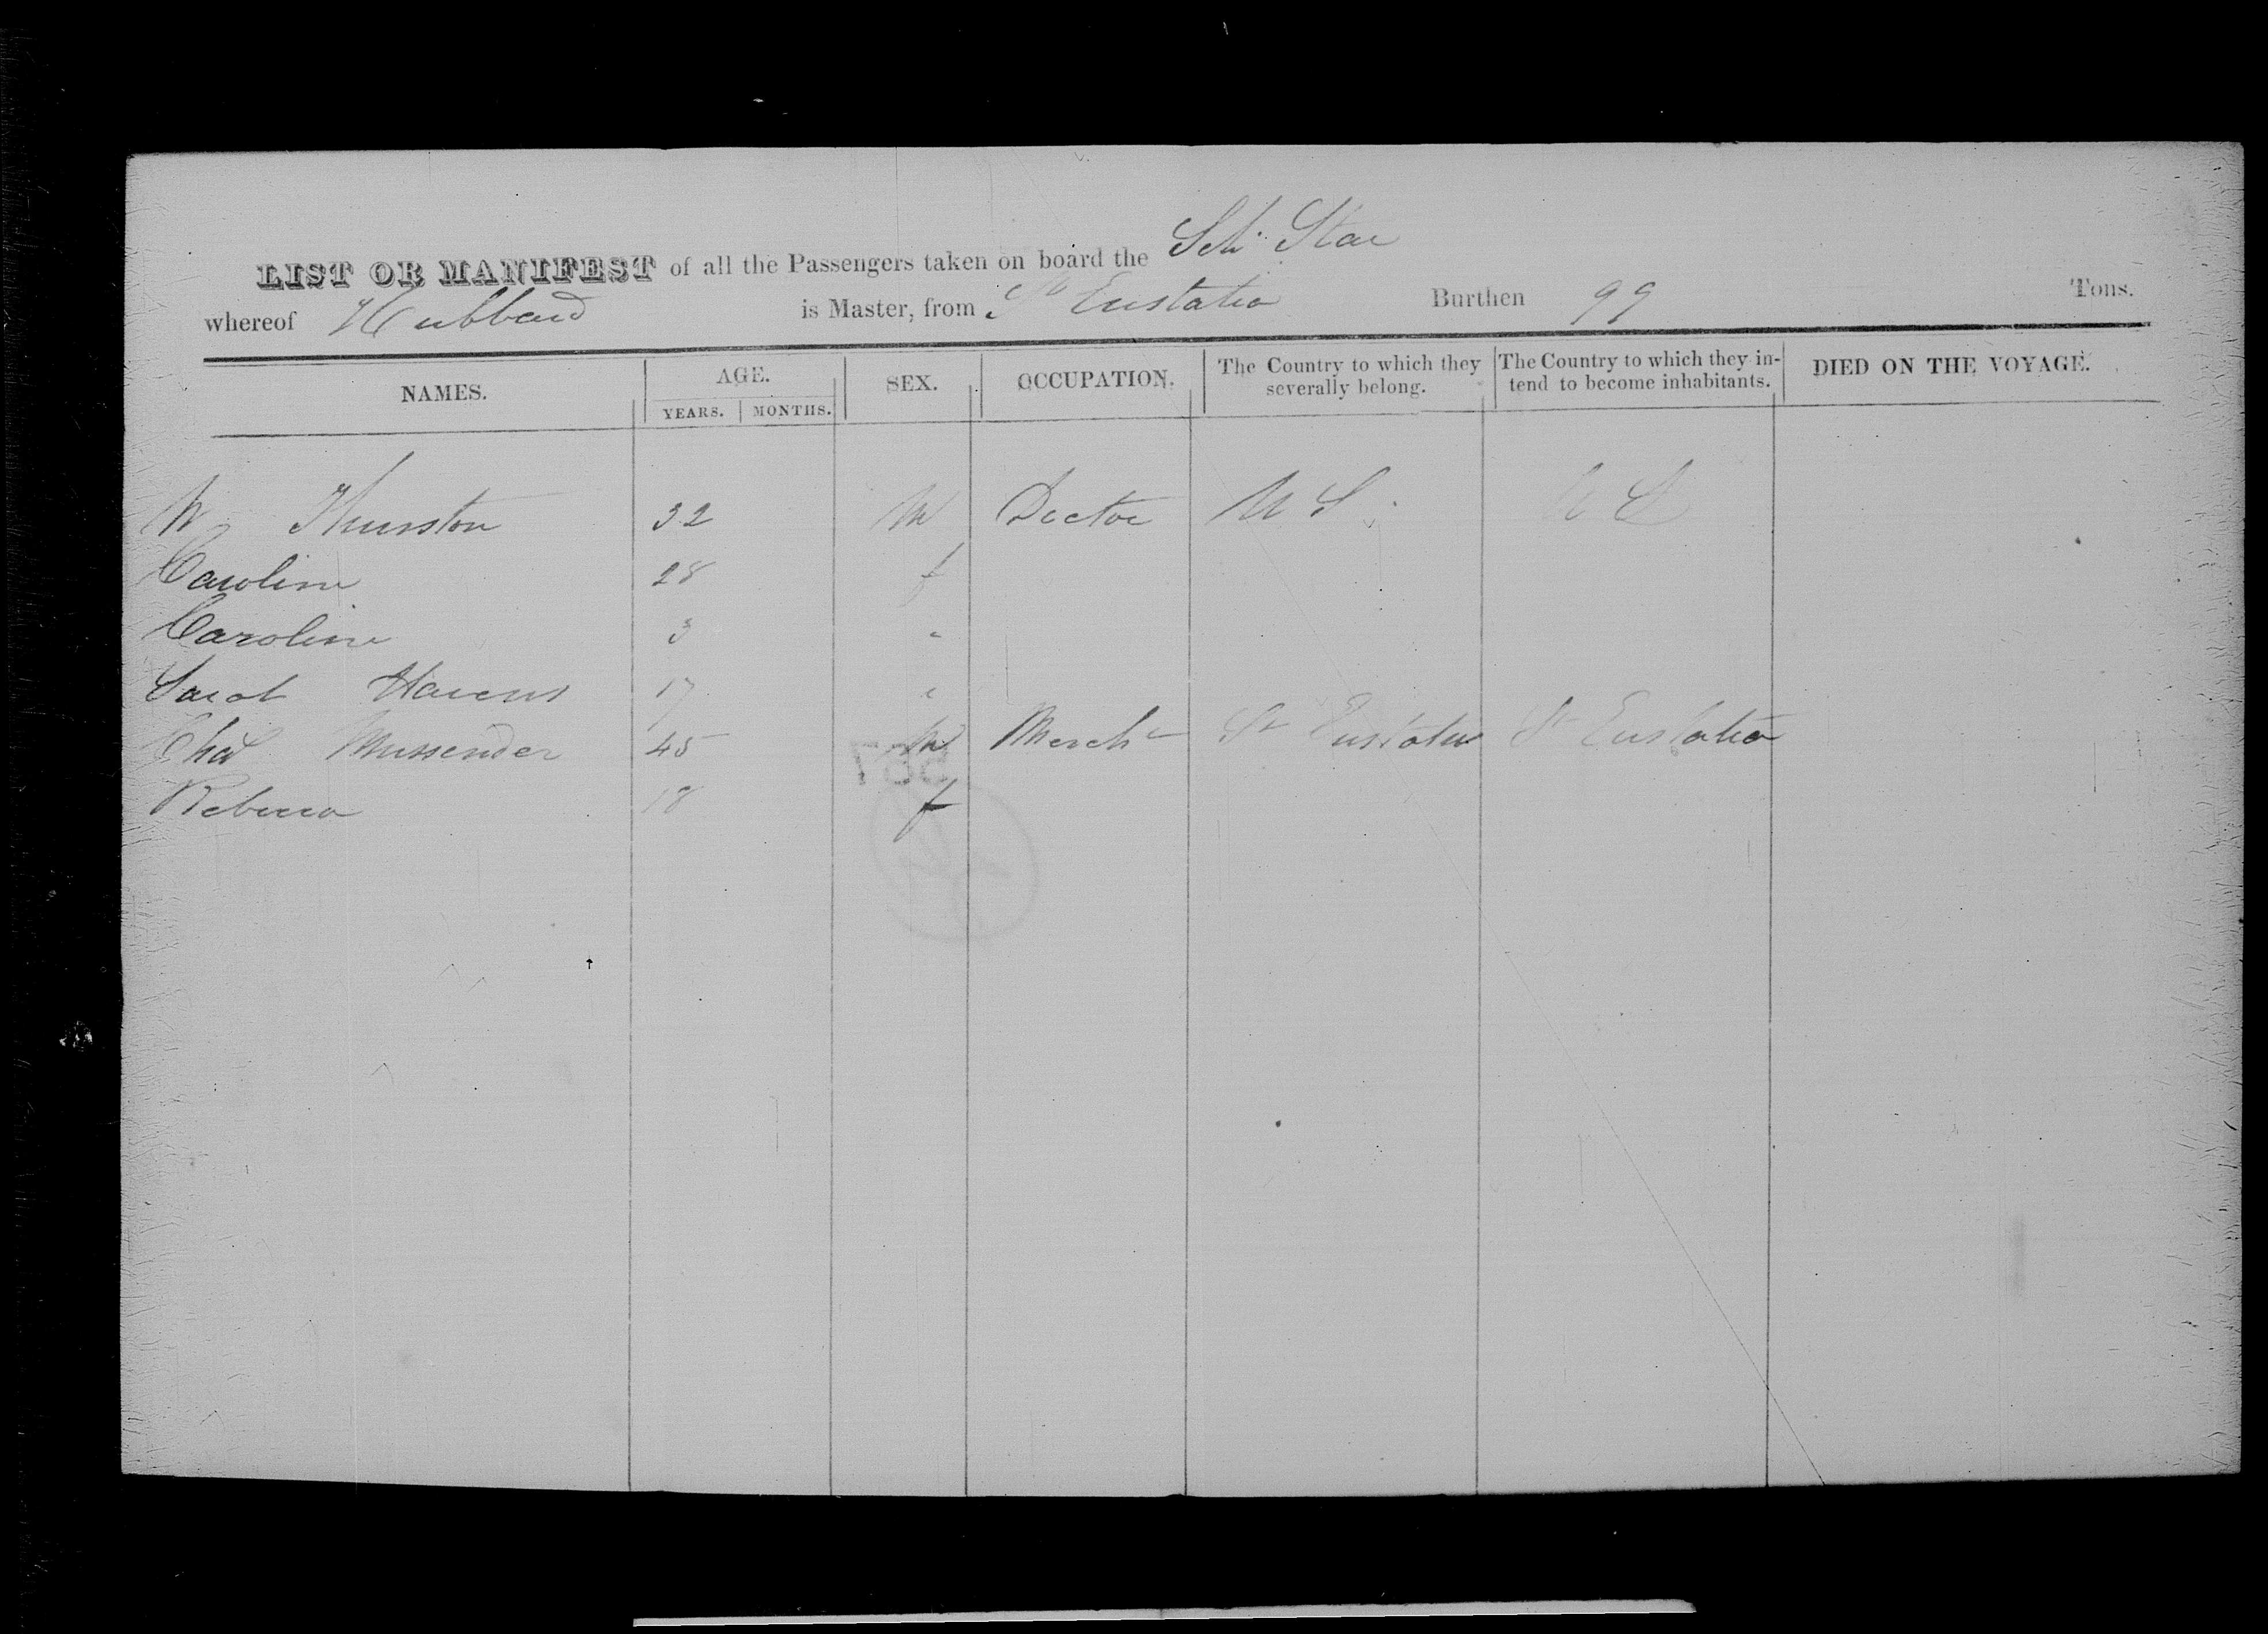 LIST OR MANIFEST of all the Passengers taken on board the Sch. Star
whereof Hubbard is Master, from St Eustatia Burthen 99 Tons.
NAMES. AGE. SEX. OCCUPATION. The Country to which they severally belong. The Country to which they in-tend to become inhabitants. DIED ON THE VOYAGE.
YEARS. MONTHS.
W Thurston 32 M Doctor U S. U S
Caroline 28 f
Caroline 3 "
Sarah Havens 17 "
Chas Mussenden 45 M Mercht St Eustatia St Eustatia
Rebecca 18 f
567